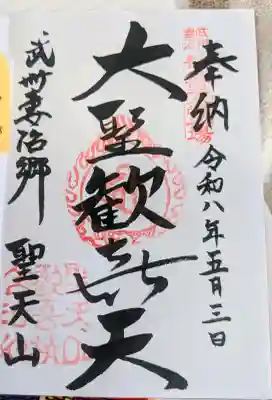 奉納 令和八年五月三日
大聖歓喜天
武州妻沼郷 聖天山